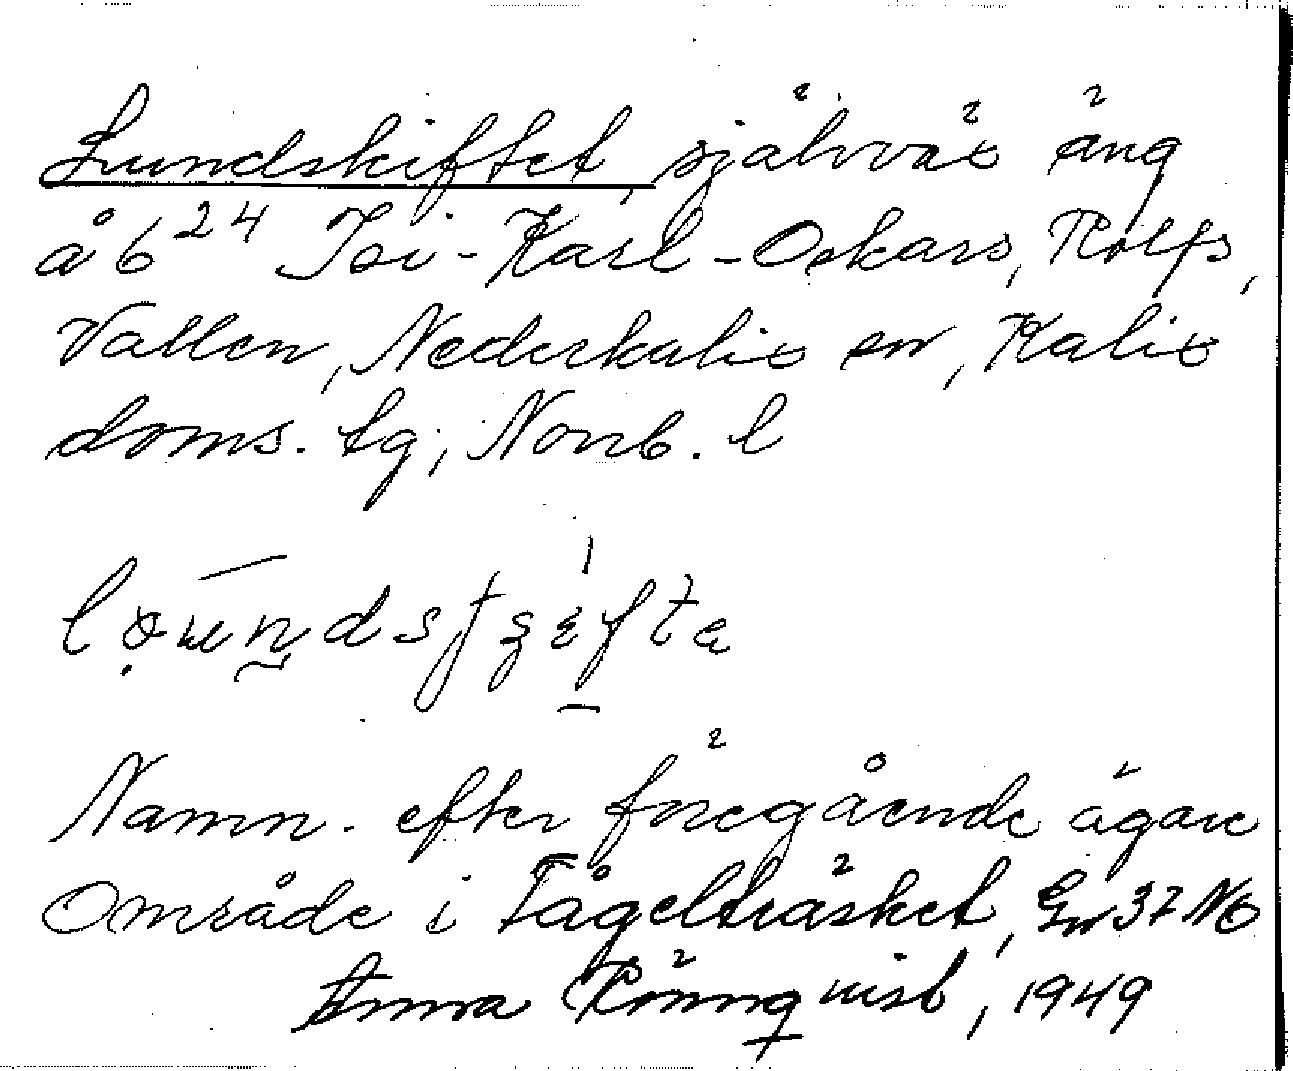 Lundskiftet, självväx äng
å 6²⁴ Isi-Karl-Oskars, Rolfs,
Vallen, Nederkalix sn, Kalix
doms. tg; Norrb. l
Namn. efter föregående ägare
Område i Fågelträsket, 37 No
Anna Rönnqvist, 1949